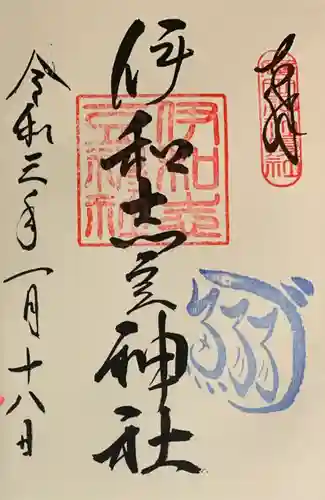 奉拝
伊和志豆神社
伊和志豆神社
令和三年一月十八日
鰯